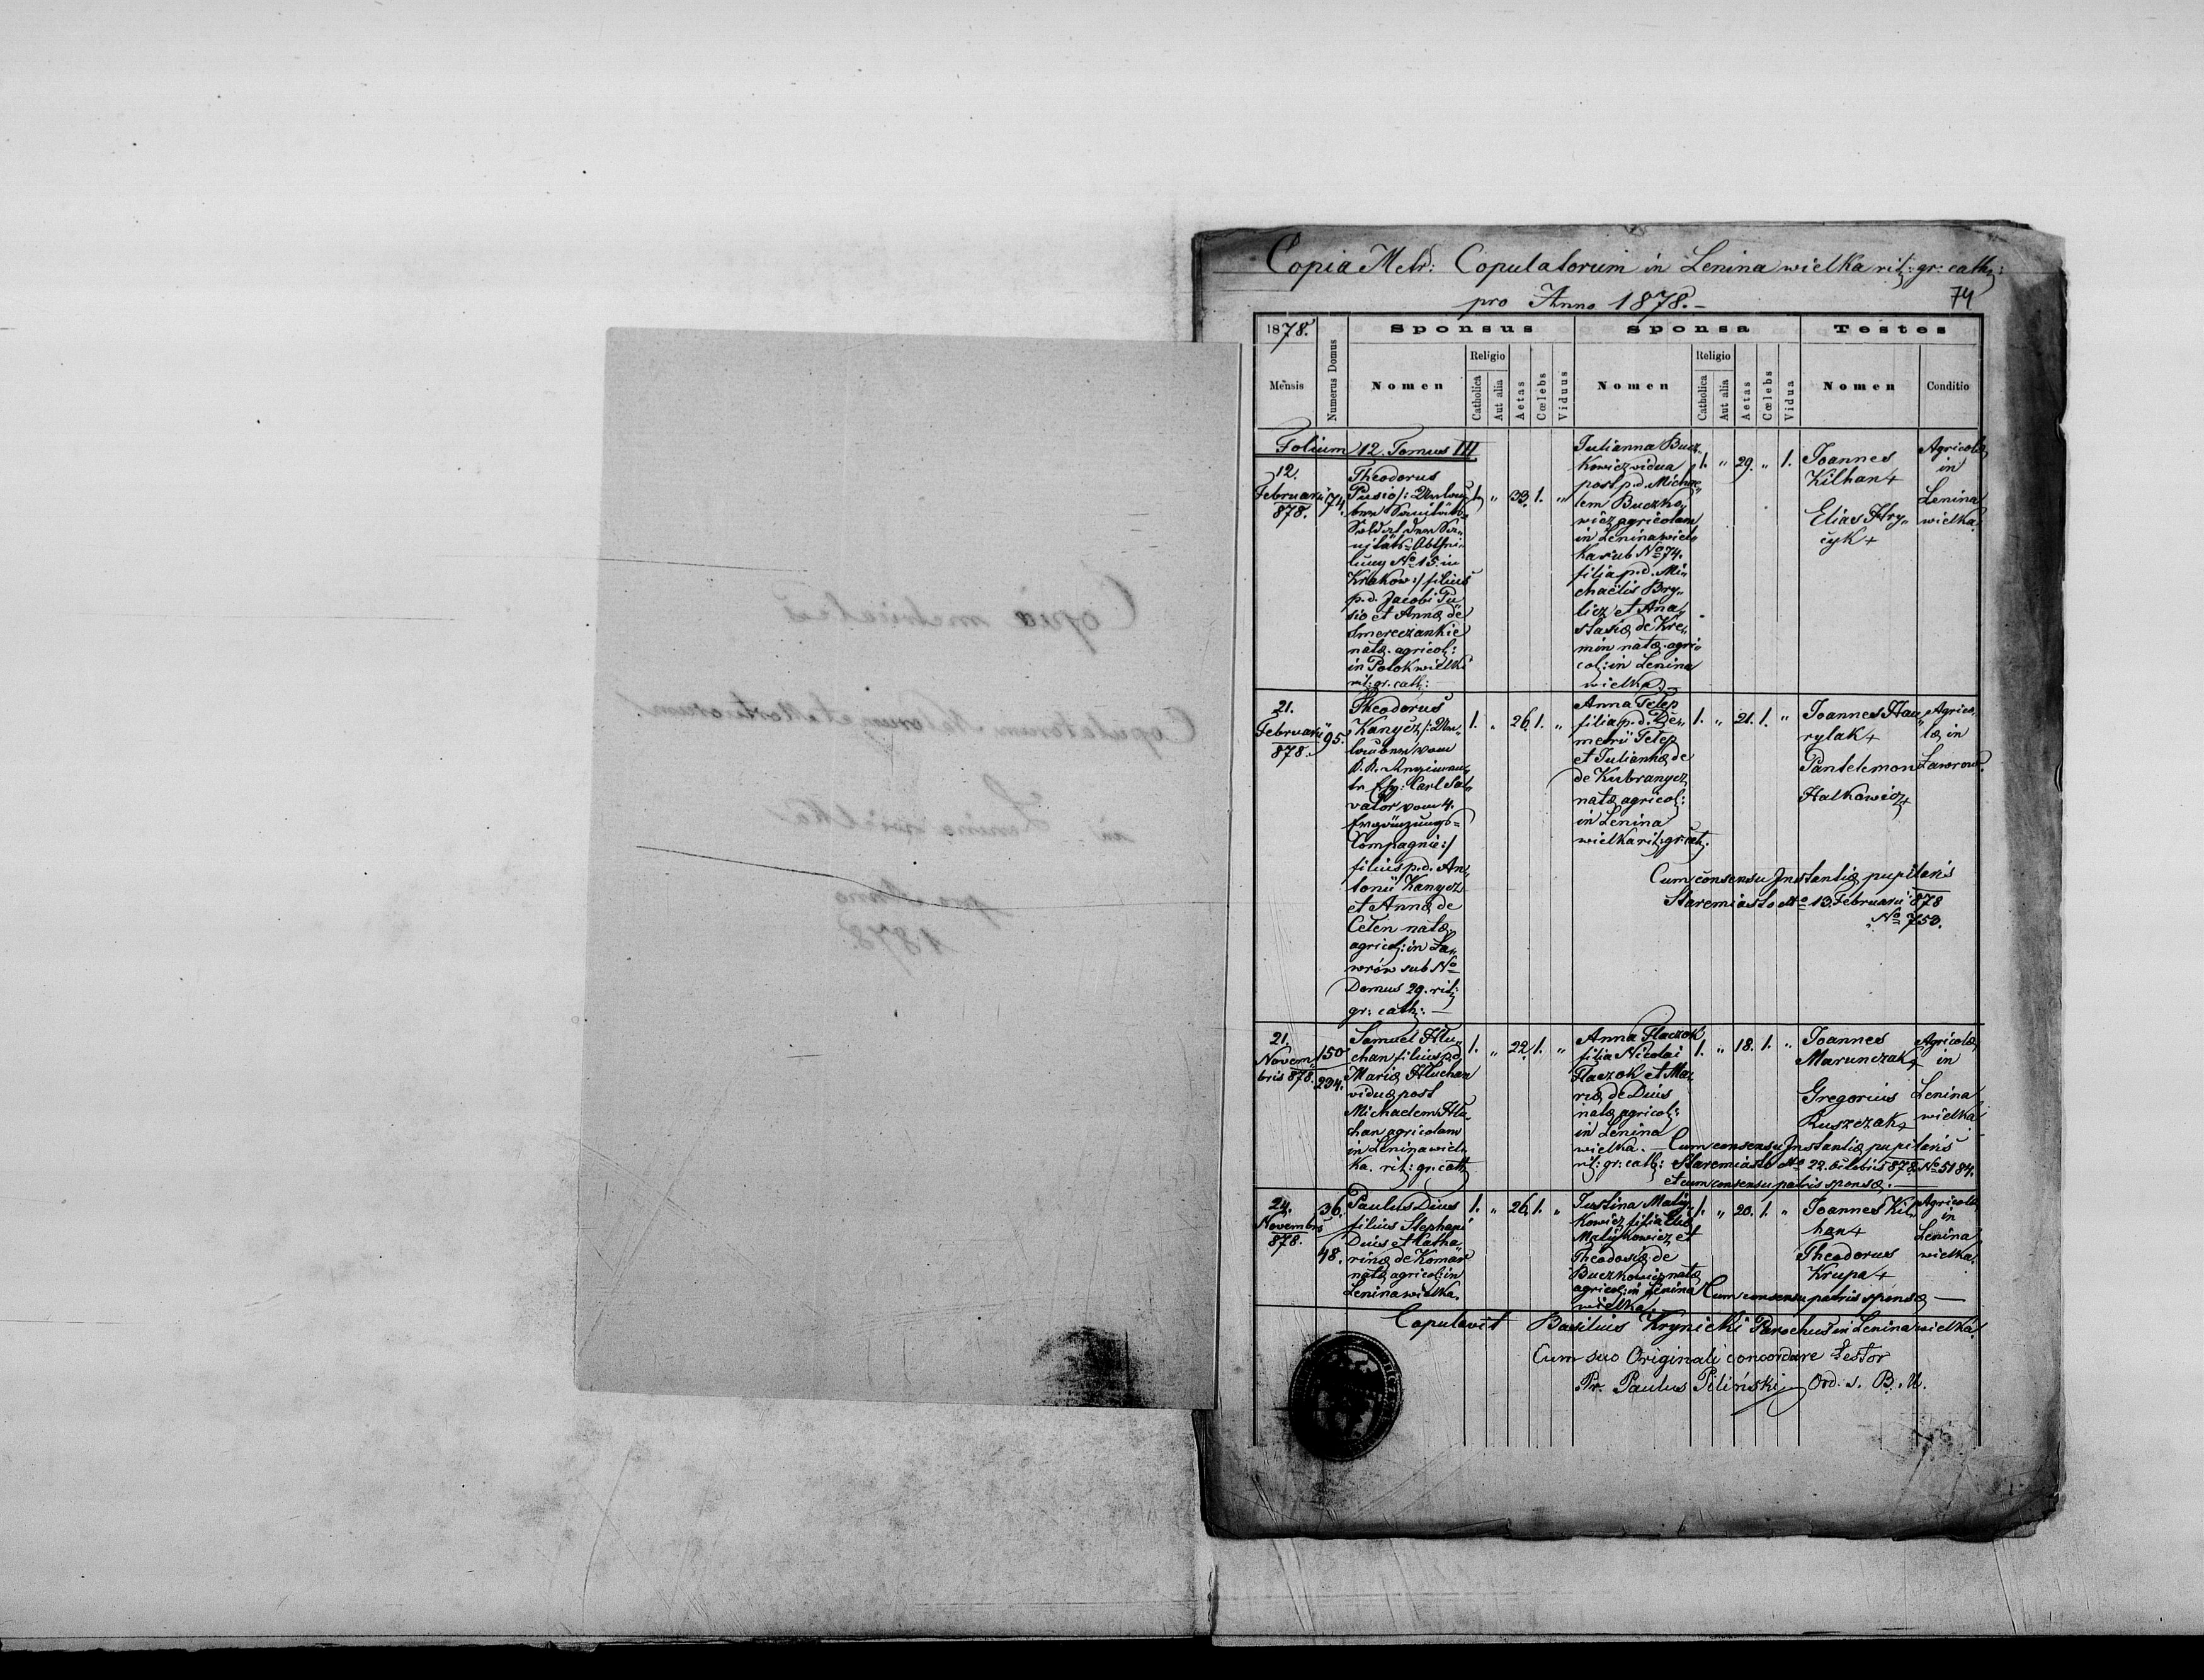 Copia Metr: Copulatorum in Lenina wielka rit: gr: cath:
pro Anno 1878.-
74
1878.
Mensis
Numerus Domus
Sponsus
Nomen
Religio
Catholica
Aut alia
Aetas
Cœlebs
Viduus
Sponsa
Nomen
Religio
Catholica
Aut alia
Aetas
Cœlebs
Vidua
Testes
Nomen
Conditio
Folium 12. Tomus III
12.
Februarii
878.
74.
Theodorus
Pusio /:
Soldat
No 15. in
Krakow :/ filius
p.d. Jacobi Pu
sio et Annæ de
Smereczankie
natæ agricol:
in Potok wielki
rit: gr. cath: —
1. " 33. 1. "
Julianna Bucz
kowicz vidua
post p.d. Michae
lem Buczko
wicz agricolam
in Lenina wiel
ka sub No 74.
filia p.d. Mi
chaëlis Bry
licz et Ana
stasiæ de Kre
min natæ agri
col: in Lenina
wielka. —
1. " 29. " 1.
Joannes
Kilhan +
Elias Hry
cyk +
Agricolæ
in
Lenina
wielka.
21.
Februarii
878.
95.
Theodorus
Kanycz /: Ur
lauber vom
k. k. Infanterie
Carl Sal
vator vom 4.
Ergänzungs=
Compagnie :/
filius p.d. An
tonii Kanycz
et Annæ de
Ceten natæ
agricol: in La
wrów sub No
Domus 29. rit:
gr: cath: —
1. " 26. 1. "
Anna Telep
filia p.d. De
metrii Telep
et Juliannæ de
de Kubranycz
natæ agricol:
in Lenina
wielka rit: gr: cath.
1. " 21. 1. "
Joannes Hau
rylak +
Pantelemon
Halkowicz +
Agrico
læ in
Lawrow.
Cum consensu Instantiæ pupilaris
Staremiasto dto 13. Februarii 878
No 753.
21.
Novem
bris 878.
150
234.
Samuel Hlu
chan filius p.d.
Mariæ Hluchan
viduæ post
Michaelem Hlu
chan agricolam
in Lenina wiel
ka. rit: gr: cath:
1. " 22. 1. "
Anna Flaczok
filia Nicolai
Flaczok et Ma
riæ de Duis
natæ agricol:
in Lenina
wielka. —
rit: gr: cath:
1. " 18. 1. "
Joannes
Marunczak +
Gregorius
Ruszczak +
Agricolæ
in
Lenina
wielka
Cum consensu Instantiæ pupilaris
Staremiasto dto 22. Octobris 878. No 5184.
et cum consensu patris sponsæ. —
24.
Novembris
878.
36.
48.
Paulus Dius
filius Stephani
Duis et Catha
rinæ de Komar
natæ agricol: in
Lenina wielka.
1. " 26. 1. "
Justina Maty
kowicz filia Eliæ
Matykowicz et
Theodosiæ de
Buczkowicz natæ
agricol: in Lenina
wielka.
1. " 20. 1. "
Joannes Kil
han +
Theodorus
Krupa +
Agricolæ
in
Lenina
wielka.
Cum consensu patris sponsæ —
Copulavit Basilius Krynicki Parochus in Lenina wielka.
Cum suo Originali concordare testor
Pr. Paulus Piliński Ord. s. B. M.
Copia metricales
Copulatorum Natorum et Mortuorum
in Lenina wielka
pro Anno
1878.